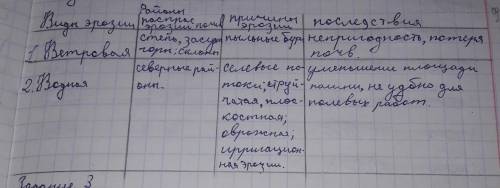 Виды эрозии
Районы
распрос
эрозии почв
причины
эрозии
последствия
1. Ветровая
степь, засуш
горн; склоны
пыльные бур
непригодность, потеря
почв.
2. Водная
северные рай-
оны.
селевое по-
токи; струй-
чатая, плос-
костная;
овражная;
ирригацион-
ная эрозии.
уменьшение площади
пашни, не удбно для
полевых работ.
Задание 3